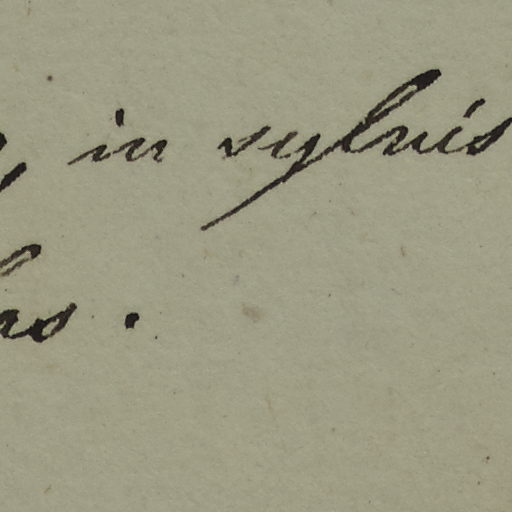 , in sylvis